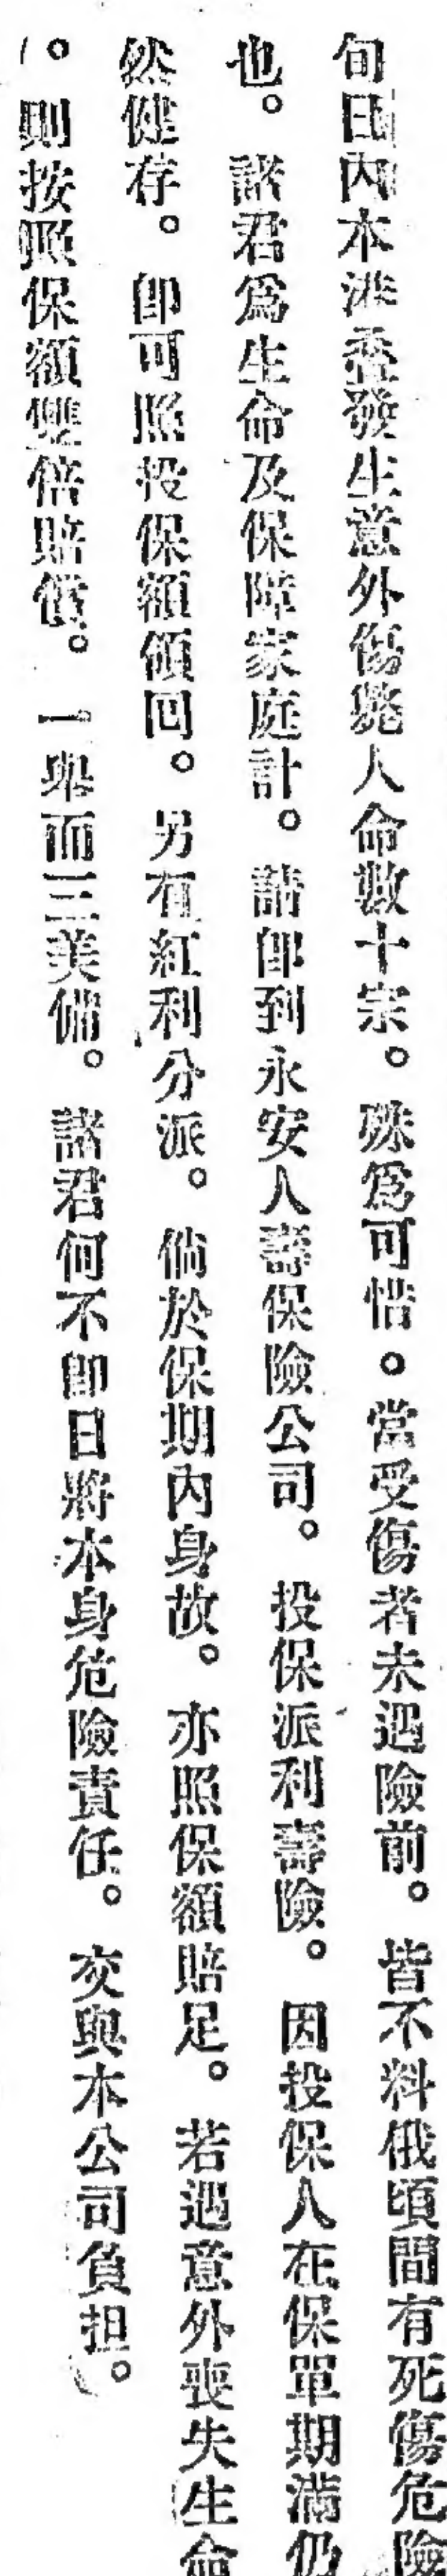 旬日內本港叠發生意外傷斃人命數十宗。殊爲可惜。當受傷者未遇險前。皆不料俄頃間有死傷危險
也。諸君爲生命及保障家庭計。請卽到永安人壽保險公司。投保派利壽險。因投保人在保單期滿仍
然健存。卽可照投保額領回。另有紅利分派。倘於保期內身故。亦照保額賠足。若遇意外喪失生命
。則按照保額雙倍賠償。一舉而三美備。諸君何不卽日將本身危險責任。交與本公司負担。